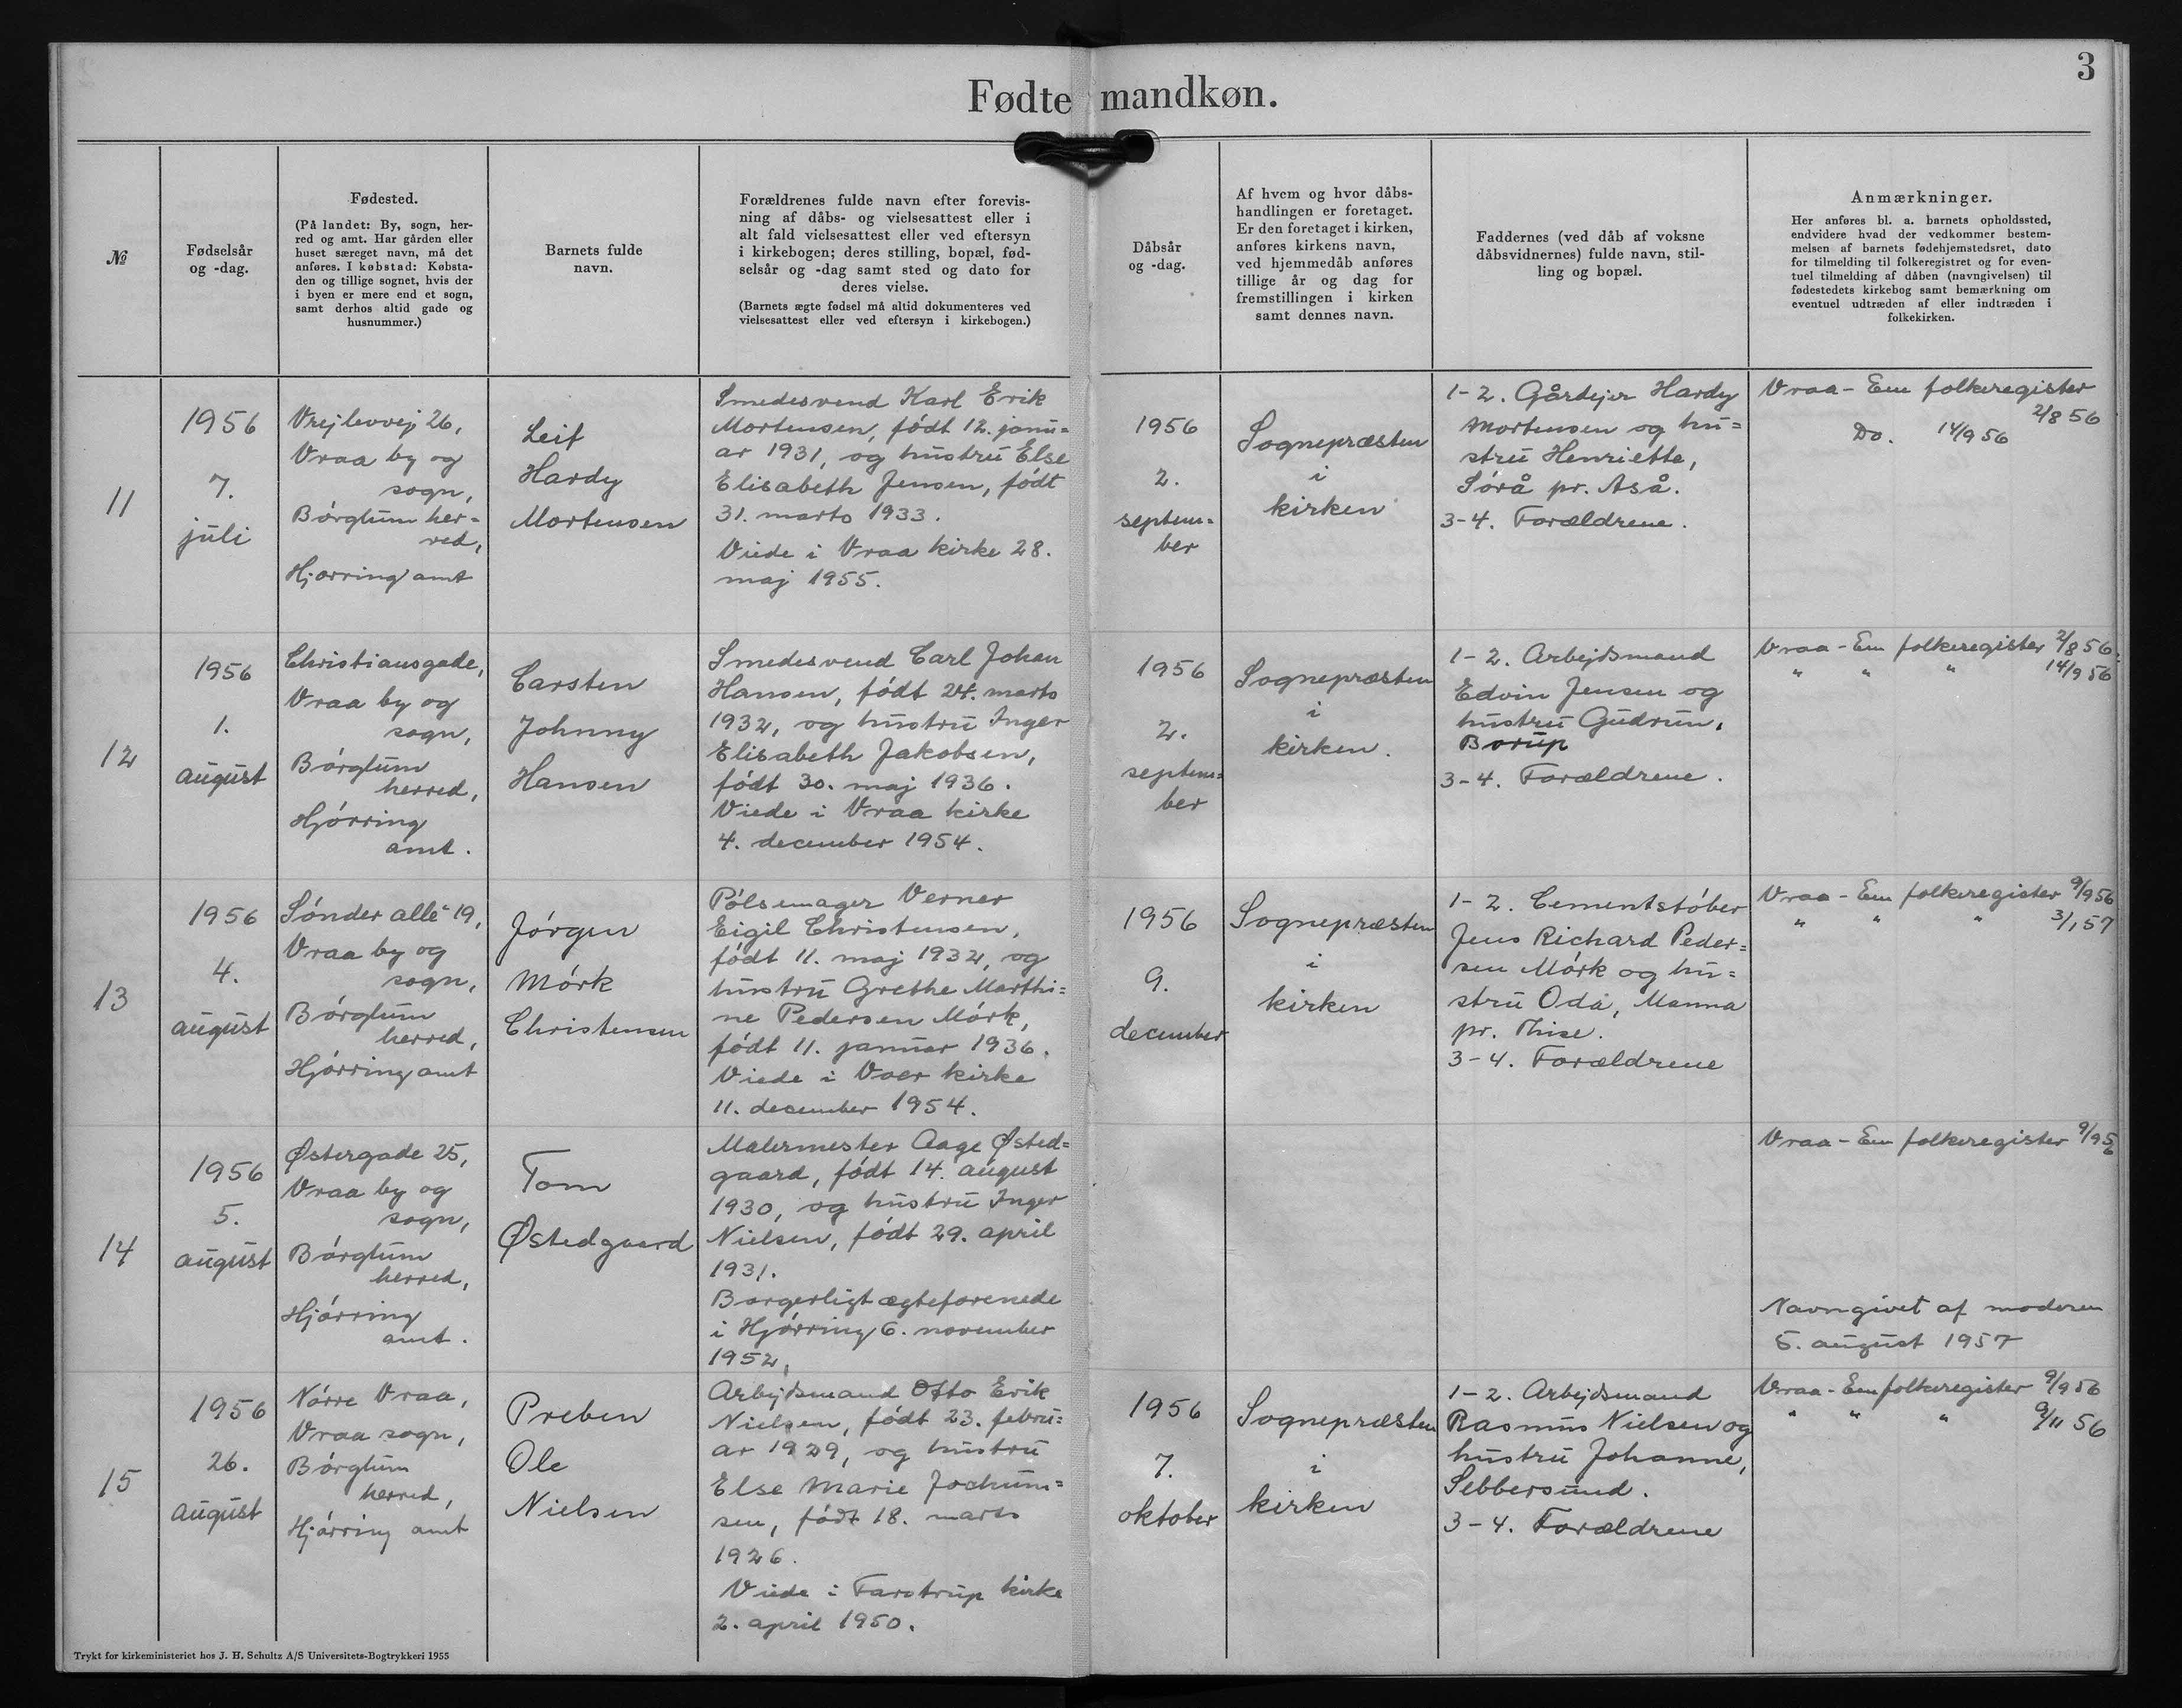 3
Fødte mandkøn.
№
Fødselsår
og -dag.
Fødested.
(På landet: By, sogn, her-
red og amt. Har gården eller
huset særeget navn, må det
anføres. I købstad: Købsta-
den og tillige sognet, hvis der
i byen er mere end et sogn,
samt derhos altid gade og
husnummer.)
Barnets fulde
navn.
Forældrenes fulde navn efter forevis-
ning af dåbs- og vielsesattest eller i
alt fald vielsesattest eller ved eftersyn
i kirkebogen; deres stilling, bopæl, fød-
selsår og -dag samt sted og dato for
deres vielse.
(Barnets ægte fødsel må altid dokumenteres ved
vielsesattest eller ved eftersyn i kirkebogen.)
Dåbsår
og -dag.
Af hvem og hvor dåbs-
handlingen er foretaget.
Er den foretaget i kirken,
anføres kirkens navn,
ved hjemmedåb anføres
tillige år og dag for
fremstillingen i kirken
samt dennes navn.
Faddernes (ved dåb af voksne
dåbsvidnernes) fulde navn, stil-
ling og bopæl.
Anmærkninger.
Her anføres bl. a. barnets opholdssted,
endvidere hvad der vedkommer bestem-
melsen af barnets fødehjemstedsret, dato
for tilmelding til folkeregistret og for even-
tuel tilmelding af dåben (navngivelsen) til
fødestedets kirkebog samt bemærkning om
eventuel udtræden af eller indtræden i
folkekirken.
11
1956
7.
juli
Vrejlevvej 26,
Vraa by og
sogn,
Børglum her=
red,
Hjørring amt
Leif
Hardy
Mortensen
Smedesvend Karl Erik
Mortensen, født 12. janu=
ar 1931, og hustru Else
Elisabeth Jensen, født
31. marts 1933.
Viede i Vraa kirke 28.
maj 1955.
1956
2.
septem=
ber
Sognepræsten
i
kirken
1-2. Gårdejer Hardy
Mortensen og hu=
stru Henriette,
Sørå pr. Aså.
3-4. Forældrene.
Vraa - Em folkeregister
2/8 56
Do. 14/9 56
12
1956
1.
august
Christiansgade,
Vraa by og
sogn,
Børglum
herred,
Hjørring
amt.
Carsten
Johnny
Hansen
Smedesvend Carl Johan
Hansen, født 24. marts
1932, og hustru Inger
Elisabeth Jakobsen,
født 30. maj 1936.
Viede i Vraa kirke
4. december 1954.
1956
2.
septem=
ber
Sognepræsten
i
kirken.
1-2. Arbejdsmand
Edvin Jensen og
hustru Gudrun,
Borup
3-4. Forældrene.
Vraa - Em folkeregister 2/8 56.
" " " 14/9 56
13
1956
4.
august
Sønder allé 19,
Vraa by og
sogn,
Børglum
herred,
Hjørring amt
Jørgen
Mørk
Christensen
Pølsemager Verner
Eigil Christensen,
født 11. maj 1932, og
hustru Grethe Marthi=
ne Pedersen Mørk,
født 11. januar 1936.
Viede i Voer kirke
11. december 1954.
1956
9.
december
Sognepræsten
i
kirken
1-2. Cementstøber
Jens Richard Peder=
sen Mørk og hu=
stru Oda, Manna
pr. Thise.
3-4. Forældrene
Vraa - Em folkeregister 9/9 56
" " " 3/1 57
14
1956
5.
august
Østergade 25,
Vraa by og
sogn,
Børglum
herred,
Hjørring
amt.
Tom
Østedgaard
Malermester Aage Østed=
gaard, født 14. august
1930, og hustru Inger
Nielsen, født 29. april
1931.
Borgerligt ægteforenede
i Hjørring 6. november
1952.
Vraa - Em folkeregister 9/9 56
Navngivet af moderen
5. august 1957
15
1956
26.
august
Nørre Vraa,
Vraa sogn,
Børglum
herred,
Hjørring amt
Preben
Ole
Nielsen
Arbejdsmand Otto Erik
Nielsen, født 23. febru=
ar 1929, og hustru
Else Marie Jochum=
sen, født 18. marts
1926.
Viede i Farstrup kirke
2. april 1950.
1956
7.
oktober
Sognepræsten
i
kirken
1-2. Arbejdsmand
Rasmus Nielsen og
hustru Johanne,
Sebbersund.
3-4. Forældrene
Vraa - Em folkeregister 9/9 56
" " " 9/11 56
Trykt for kirkeministeriet hos J. H. Schultz A/S Universitets-Bogtrykkeri 1955